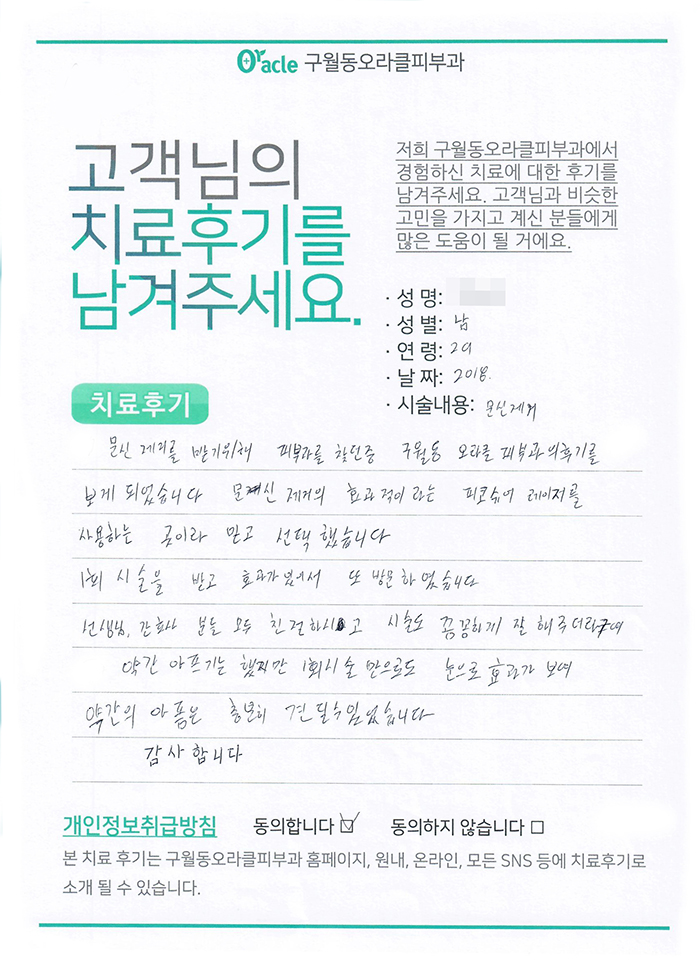 Oracle 구월동오라클피부과
고객님의
치료후기를
남겨주세요.
저희 구월동오라클피부과에서
경험하신 치료에 대한 후기를
남겨주세요. 고객님과 비슷한
고민을 가지고 계신 분들에게
많은 도움이 될 거에요.
· 성 명:
· 성 별: 남
· 연 령: 29
· 날 짜: 2018.
· 시술내용: 문신제거
치료후기
문신 제거를 받기위해 피부과를 찾던중 구월동 오라클 피부과의후기를
보게 되었습니다 문신 제거의 효과적이라는 피코슈어 레이저를
사용하는 곳이라 믿고 선택 했습니다
1회 시술을 받고 효과가 있어서 또 방문하였습니다
선생님, 간호사 분들 모두 친절하시고 시술도 꼼꼼하게 잘 해주더라구여
약간 아프기는 했지만 1회시술 만으로도 눈으로 효과가 보여
약간의 아픔은 충분히 견딜수있었습니다
감사합니다
개인정보취급방침 동의합니다 ☑ 동의하지 않습니다 □
본 치료 후기는 구월동오라클피부과 홈페이지, 원내, 온라인, 모든 SNS 등에 치료후기로
소개 될 수 있습니다.